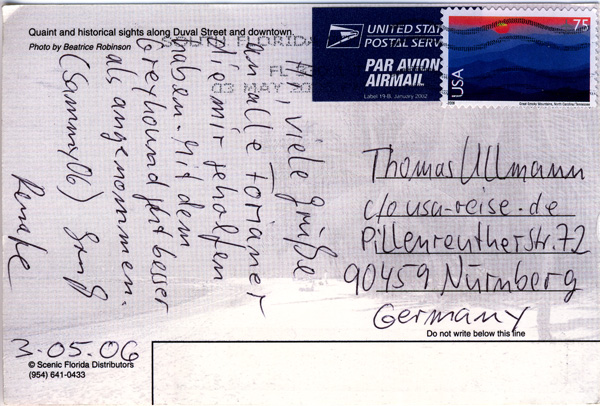 Quaint and historical sights along Duval Street and downtown.
Photo by Beatrice Robinson
SOUTH FLORIDA
FL
03 MAY
UNITED STAT
POSTAL SERV
PAR AVION
AIRMAIL
Label 19-B, January 2002
75
USA
2006
Great Smoky Mountains, North Carolina Tennessee
viele Grüße
an alle Forianer
die mir geholfen
haben. Mit dem
Greyhound gut besser
als angenommen.
(Sammy06) Gruß
Renate
3.05.06
Thomas Ullmann
c/o usa-reise.de
Pillenreutherstr. 72
90459 Nürnberg
Germany
Do not write below this line
© Scenic Florida Distributors
(954) 641-0433